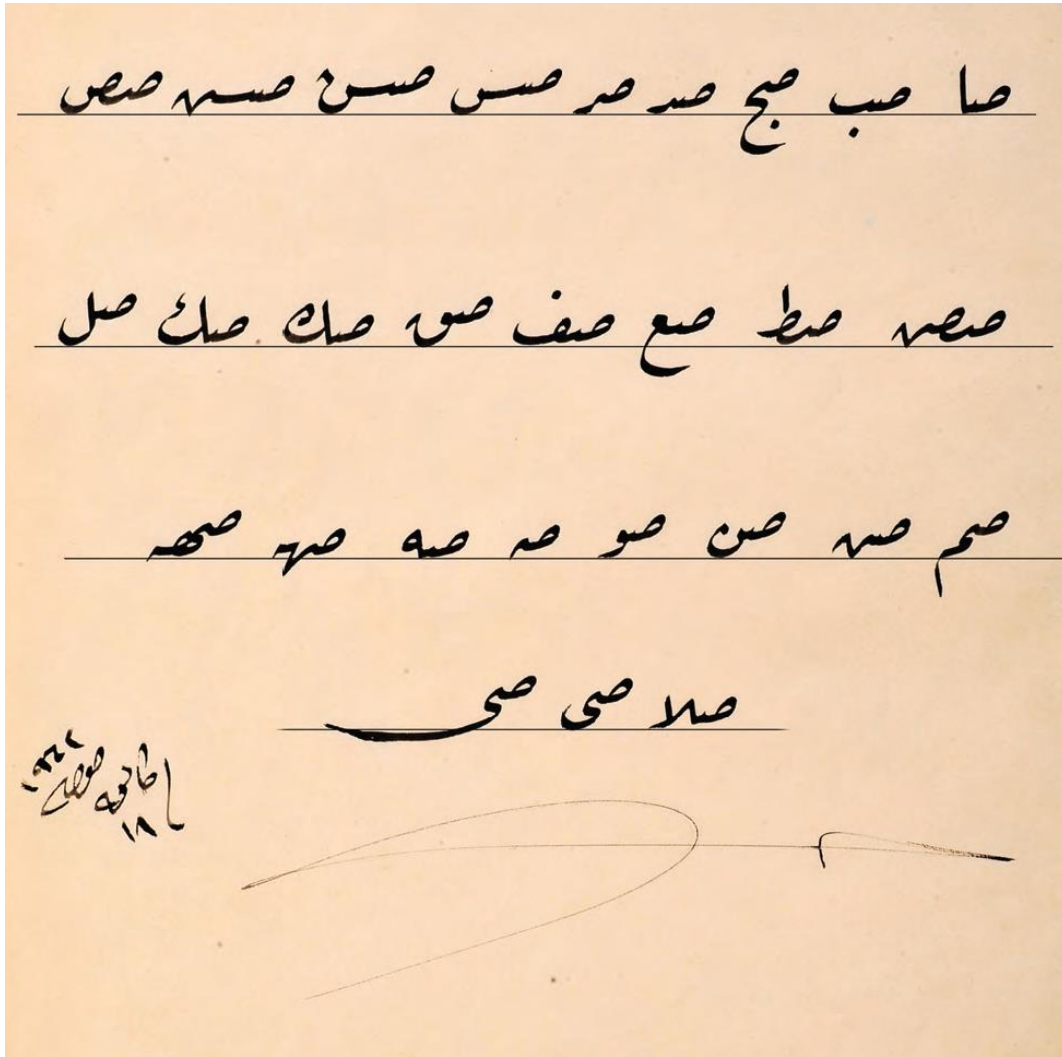 صا صب صج صد صر صس صس صس صص
صص صط صع صف صق صك صك صل
صم صن صن صو صه صه صه صهه
صلا صى صى
١٨